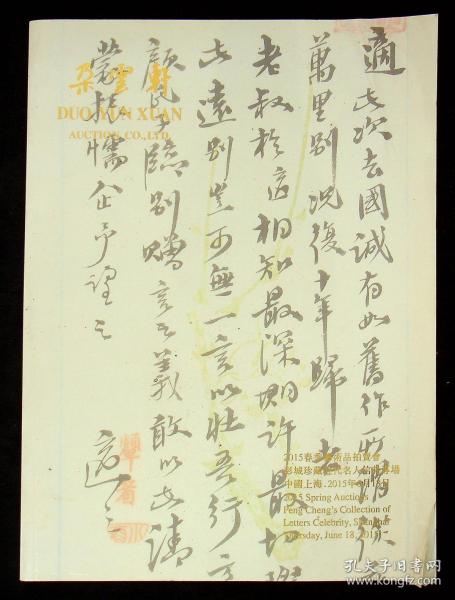 適此次去國誠有如舊作所謂從
萬里別況復十年歸者
老叔於適相知最深期許最切
此遠別豈可無一言以壯吾行
臨別贈言之義敢以此請
適之
朵雲軒
DUO YUN XUAN
AUCTION CO.,LTD.
2015春季藝術品拍賣會
彭城珍藏近代名人信札專場
中國上海·2015年6月18日
2015 Spring Auctions
Peng Cheng's Collection of
Letters Celebrity, Shanghai
Thursday, June 18, 2015
孔夫子旧书网
www.kongfz.com